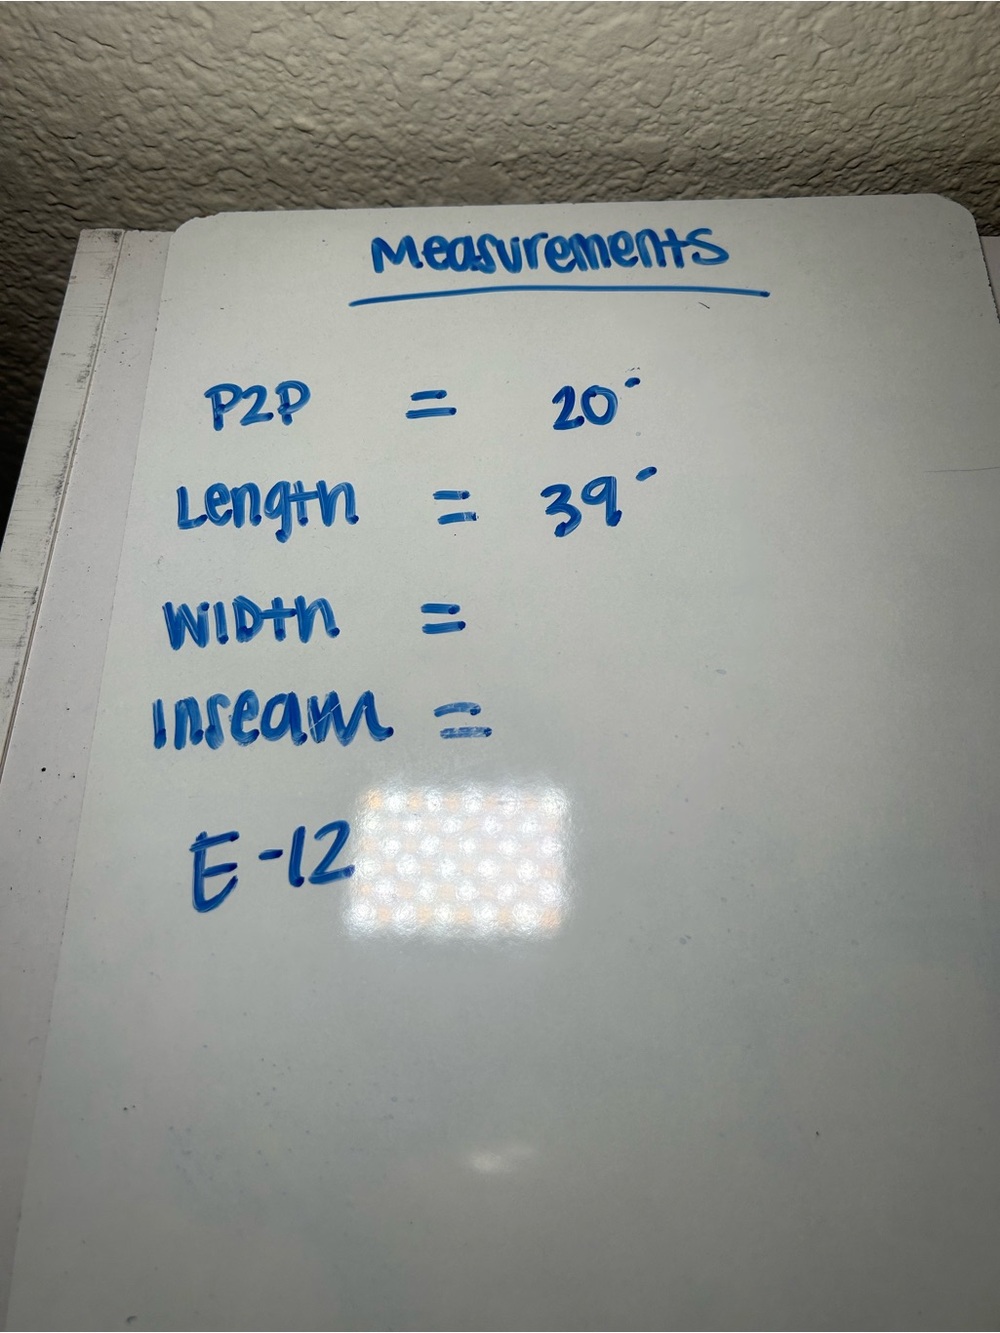 Measurements
P2P = 20"
Length = 39"
Width =
Inseam =
E-12